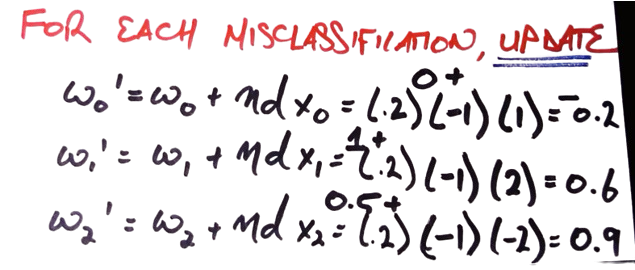 FOR EACH MISCLASSIFICATION, UPDATE
ω₀' = ω₀ + ηd x₀ = 0 + (.2)(-1)(1) = -0.2
ω₁' = ω₁ + ηd x₁ = 1 + (.2)(-1)(2) = 0.6
ω₂' = ω₂ + ηd x₂ = 0.5 + (.2)(-1)(-2) = 0.9